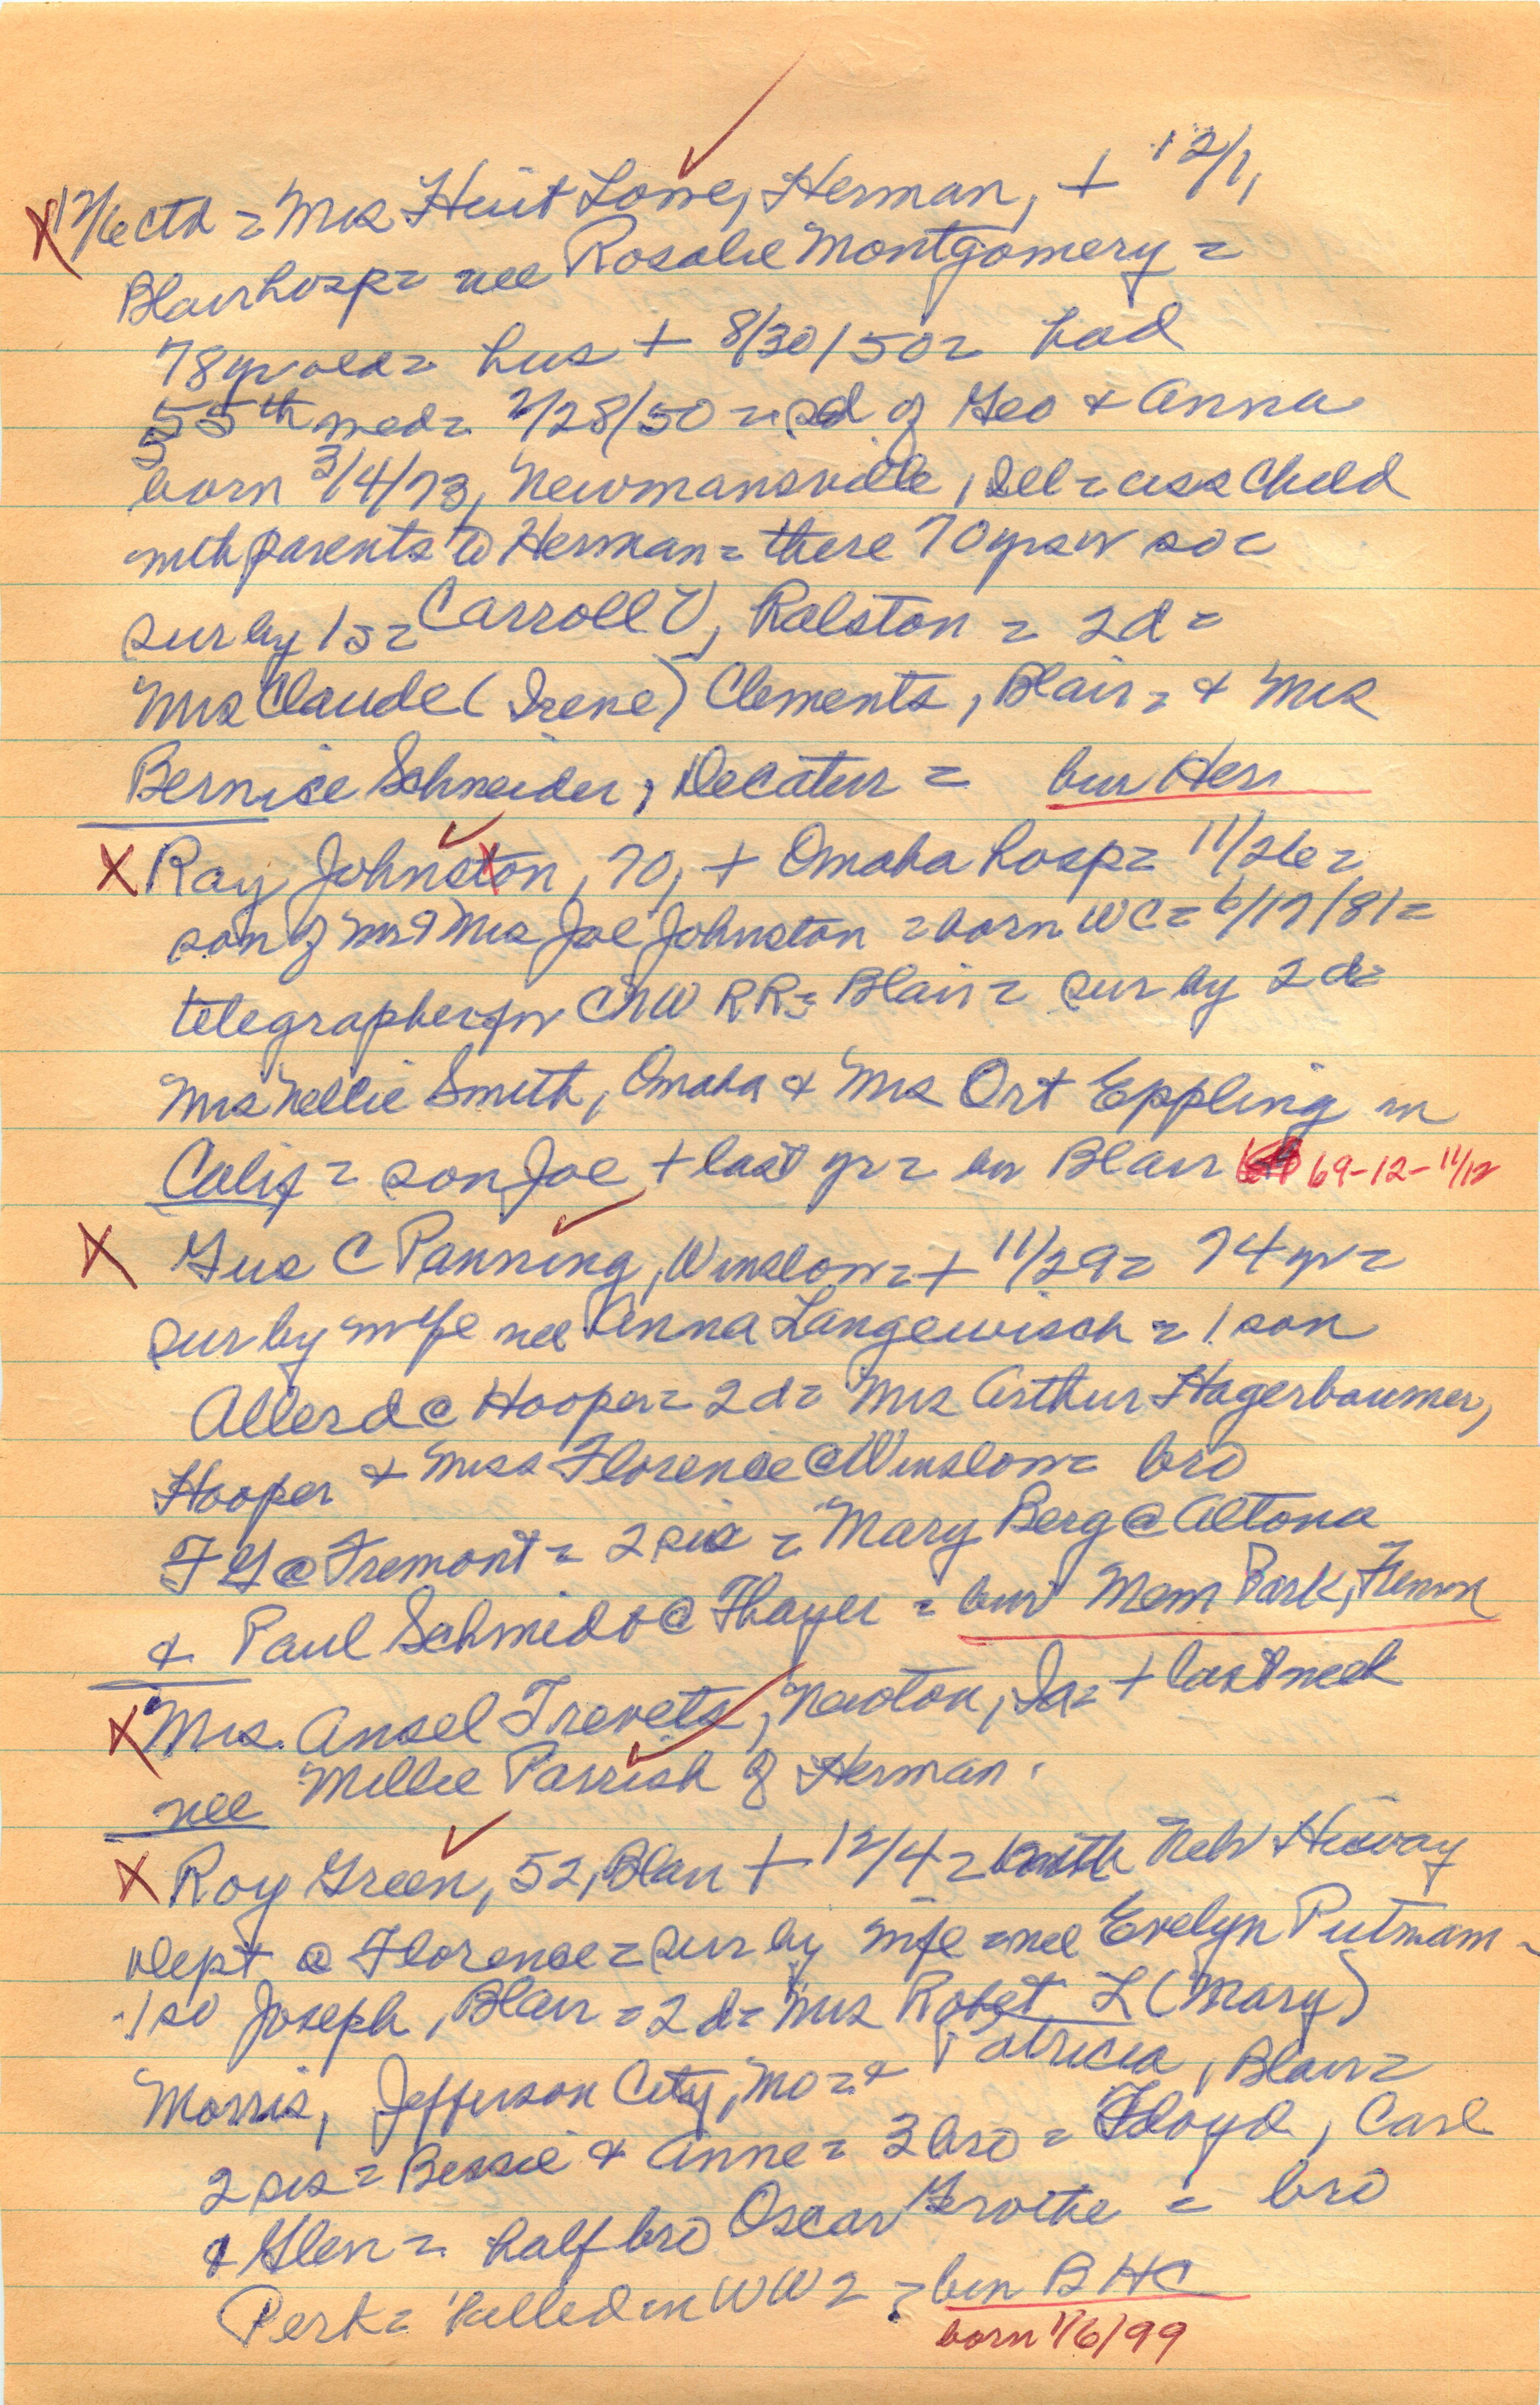 X 12/6 cth = Mrs Huit Lowe, Herman, + 12/1,
Blair hosp = nee Rosalie Montgomery =
78 yr old = hus + 8/30/50 = had
55th wed = 2/28/50 = d of Geo & Anna
born 3/4/73, Newmansville, Ill = as a child
with parents to Herman = there 70 yrs or so =
sur by 1 s = Carroll V, Ralston = 2d =
Mrs Claude (Irene) Clements, Blair = & Mrs
Bernice Schneider, Decatur = bur Her
X Ray Johnston, 70, + Omaha hosp = 11/26 =
son of Mr & Mrs Joe Johnston = born WC = 6/17/81 =
telegrapher for CNW RR = Blair = sur by 2 d =
Mrs Nellie Smith, Omaha & Mrs Ort Eppling in
Calif = son Joe + last yr = bur Blair 69-12-11/12
X Gus C Panning, Winslow = + 11/29 = 74 yr =
sur by wife nee Anna Langewisch = 1 son
Allerd @ Hooper = 2 d = Mrs Arthur Hagerbaumer,
Hooper & Miss Florence @ Winslow = bro
F G @ Fremont = 2 sis = Mary Berg @ Altona
& Paul Schmidt @ Thayer = bur Mem Park, Fremon
X Mrs. Ansel Trevets, Newton, Ia = + last week
nee Millie Parrish of Herman.
X Roy Green, 52, Blair + 12/4 = with Neb Hiway
dept @ Florence = sur by wife = nee Evelyn Putmam -
1 so Joseph, Blair = 2 d = Mrs Robet L (Mary)
Morris, Jefferson City, Mo = & Patricia, Blair =
2 sis = Bessie & Anne = 3 bro = Floyd, Carl
& Glen = half bro Oscar Grothe = bro
Perk = killed in WW 2 = bur B H C
born 1/6/99